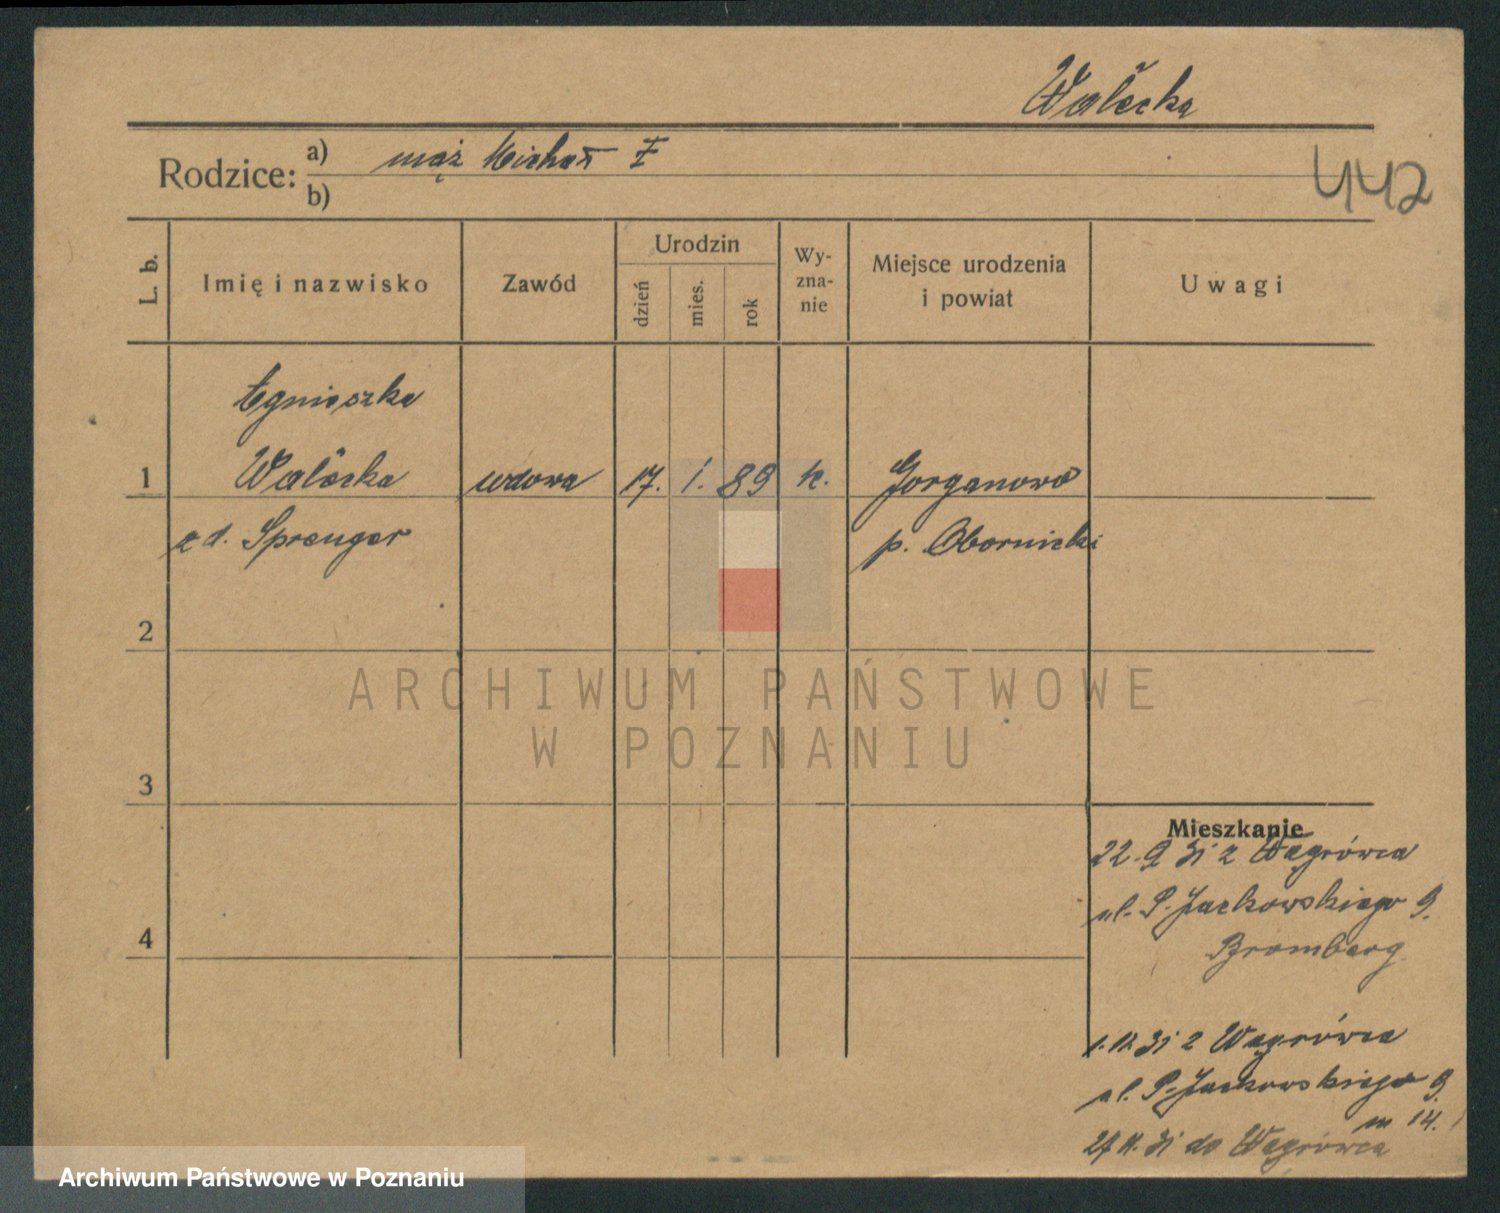 Walęcka
442
Rodzice:
a) mąż Michał I
b)
L. b.
Imię i nazwisko
Zawód
Urodzin
dzień
mies.
rok
Wy-
zna-
nie
Miejsce urodzenia
i powiat
Uwagi
Agnieszka
1 Walęcka wdowa 17. 1. 89 k. Gorganowo
z d. Sprenger p. Obornicki
2
3
4
Mieszkanie
22. 9 31 z Wągrówca
ul. P. Jackowskiego 9.
Bromberg.
31 z Wągrówca
ul. P. Jackowskiego 9
m 14.
27 11. 31 do Wągrówca
ARCHIWUM PAŃSTWOWE
W POZNANIU
Archiwum Państwowe w Poznaniu